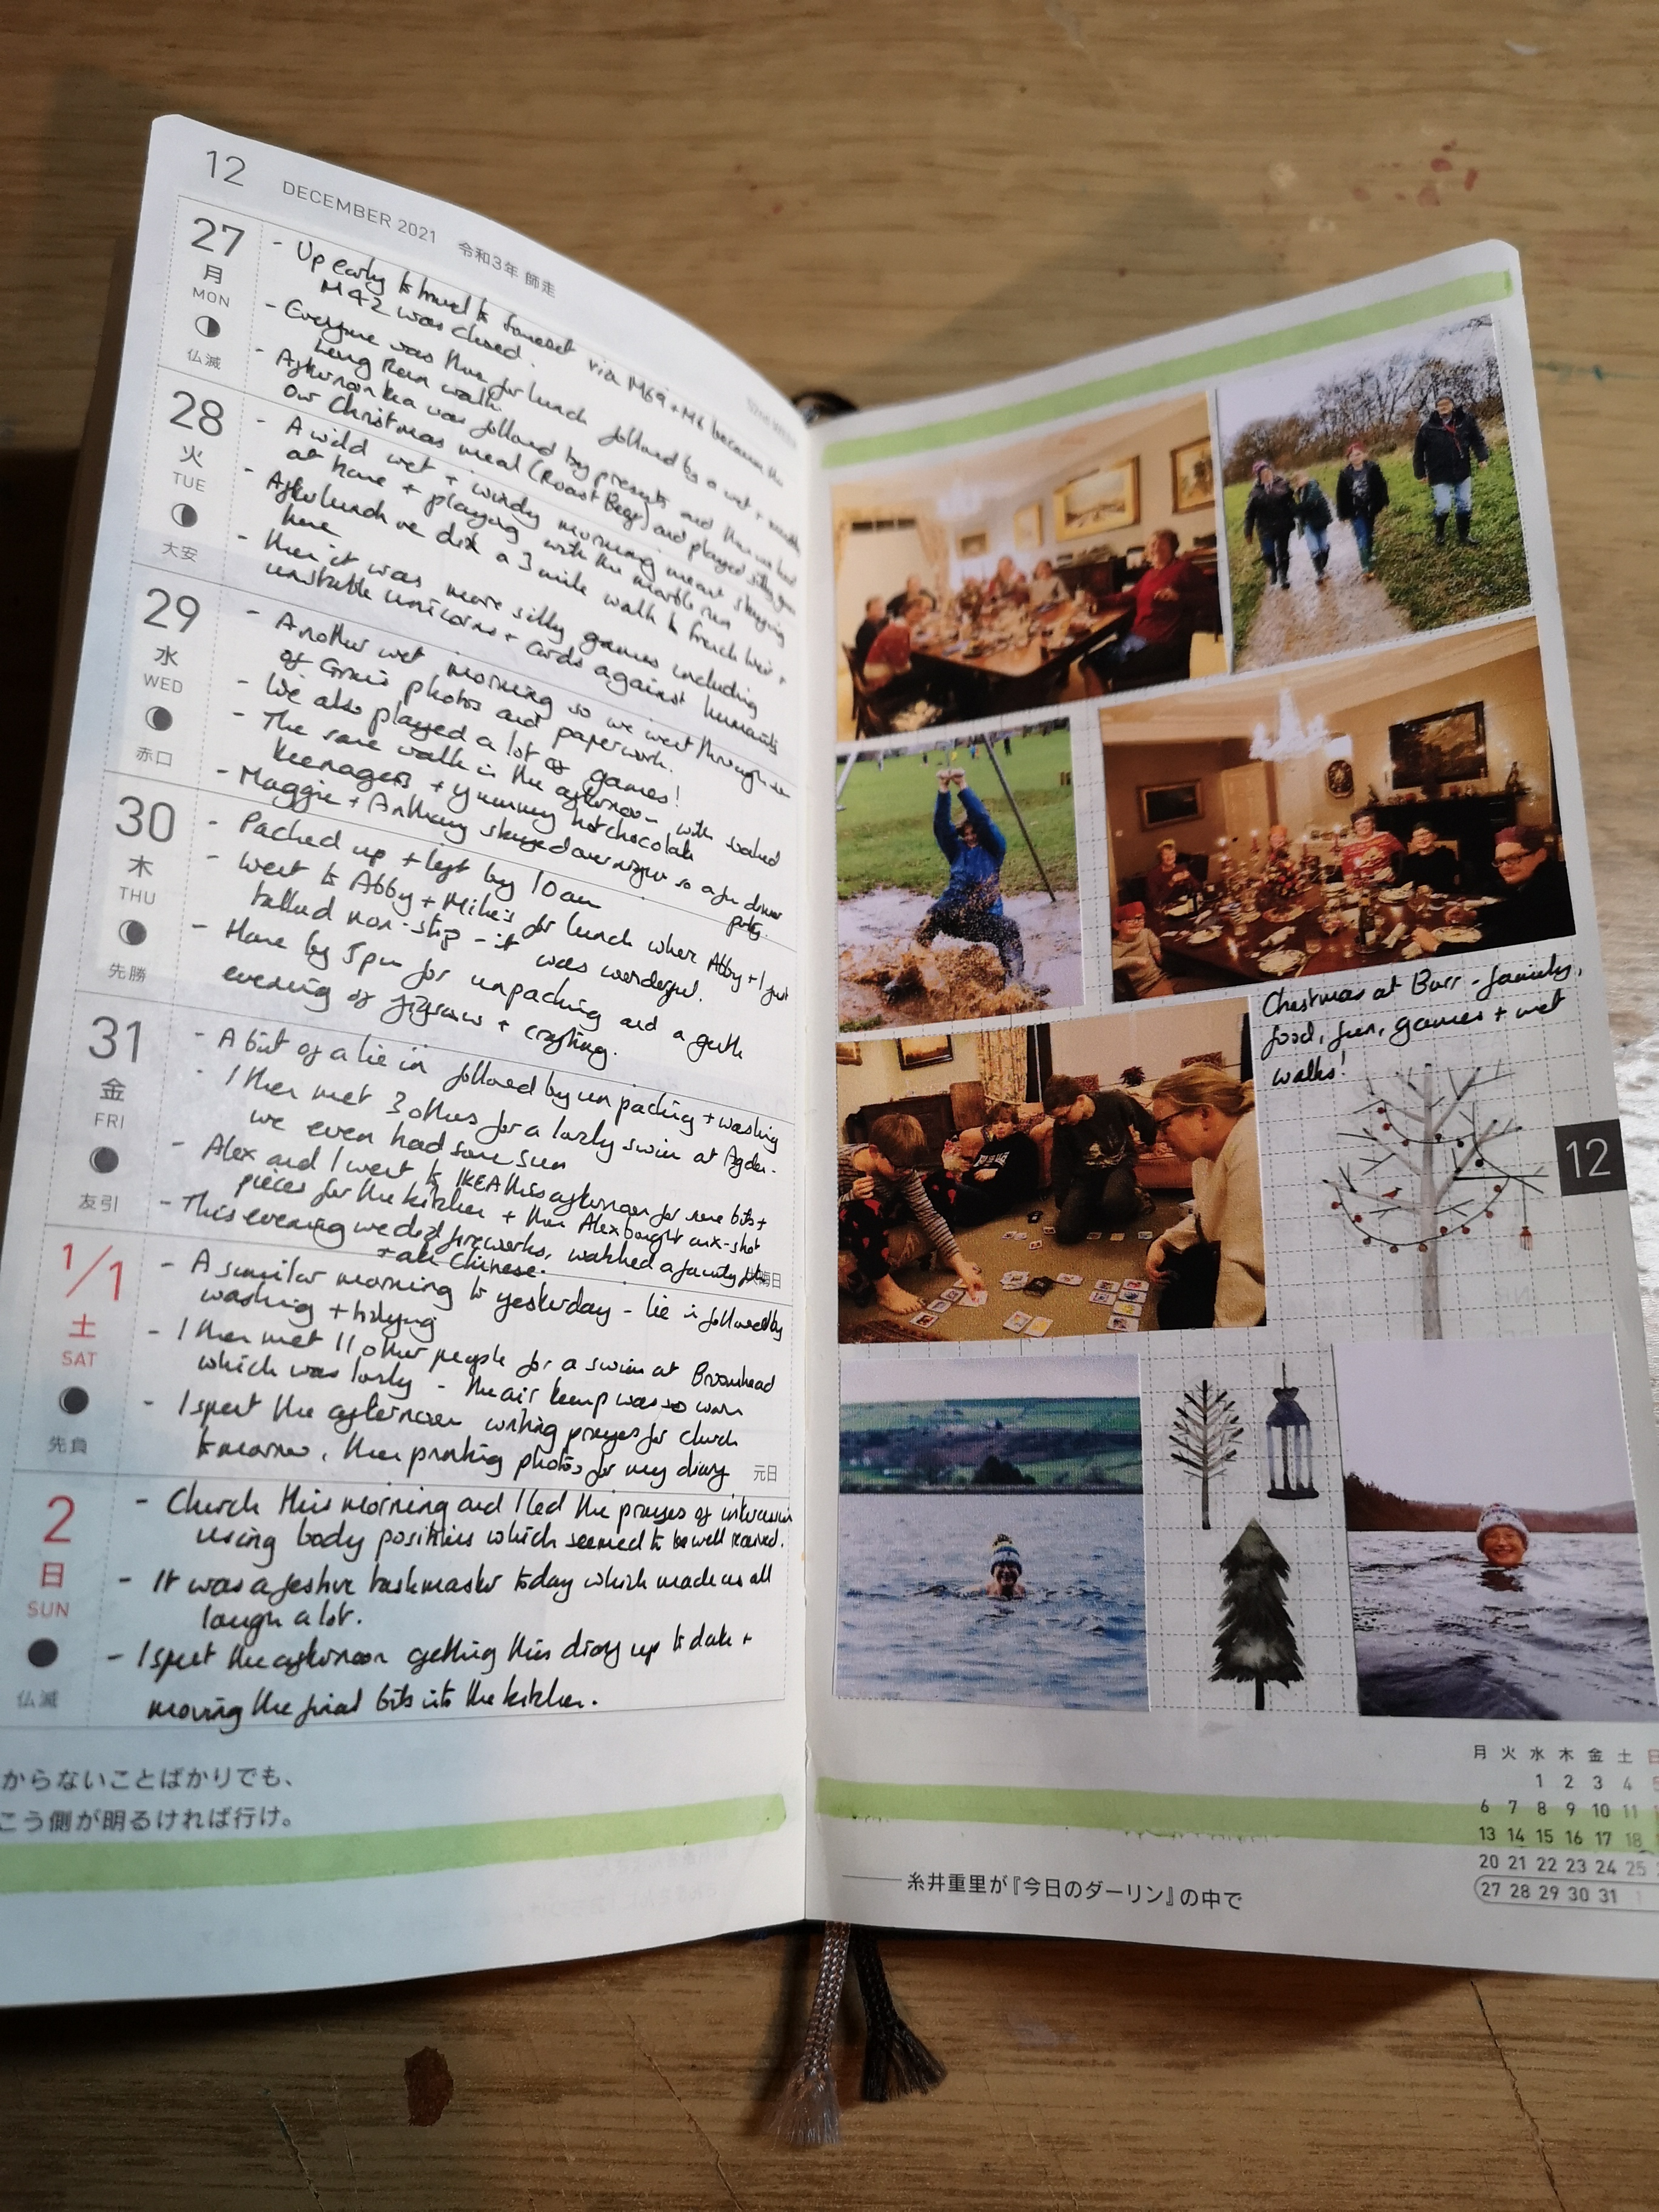 12 DECEMBER 2021 令和3年 師走
27
月
MON
仏滅
- Up early to travel to Somerset via M69 + M6 because the
M42 was closed.
- Everyone was there for lunch followed by a wet +
long run walk
- Afternoon tea was followed by presents and then we had
our Christmas meal (Roast Beef) and played silly
28
火
TUE
大安
- A wild wet + windy morning meant staying
at home + playing with the marble run
- After lunch we did a 3 mile walk to French Weir +
here
- then it was more silly games including
unstable unicorns + cards against humanity
29
水
WED
赤口
- Another wet morning so we went through
of Gran's photos and paperwork.
- We also played a lot of games!
- The same walk in the afternoon with soaked
teenagers + yummy hot chocolate
- Maggie + Anthony stayed overnight so a fun dinner
party.
30
木
THU
先勝
- Packed up + left by 10am
- Went to Abby + Mike's for lunch where Abby + I just
talked non-stop - it was wonderful.
- Home by 5pm for unpacking and a gentle
evening of jigsaw + crafting.
31
金
FRI
友引
- A bit of a lie in followed by unpacking + washing
- I then met 3 others for a lovely swim at Agden -
we even had some sun
- Alex and I went to IKEA this afternoon for some bits +
pieces for the kitchen + then Alex bought
- This evening we did fireworks, watched a family film
+ ate Chinese.
1/1
土
SAT
先負
- A similar morning to yesterday - lie in followed by
washing + tidying
- I then met 11 other people for a swim at Broomhead
which was lovely - the air temp was so warm
- I spent the afternoon writing prayers for church
tomorrow, then printing photos for my diary
元日
2
日
SUN
仏滅
- Church this morning and I led the prayers of intercession
using body positions which seemed to be well received.
- It was a festive taskmaster today which made us all
laugh a lot.
- I spent the afternoon getting this diary up to date +
moving the final bits into the kitchen.
からないことばかりでも、
こう側が明るければ行け。
Christmas at Barr - family,
food, fun, games + wet
walks!
12
月 火 水 木 金 土 日
1 2 3 4 5
6 7 8 9 10 11
13 14 15 16 17 18
20 21 22 23 24 25
27 28 29 30 31 1
糸井重里が『今日のダーリン』の中で